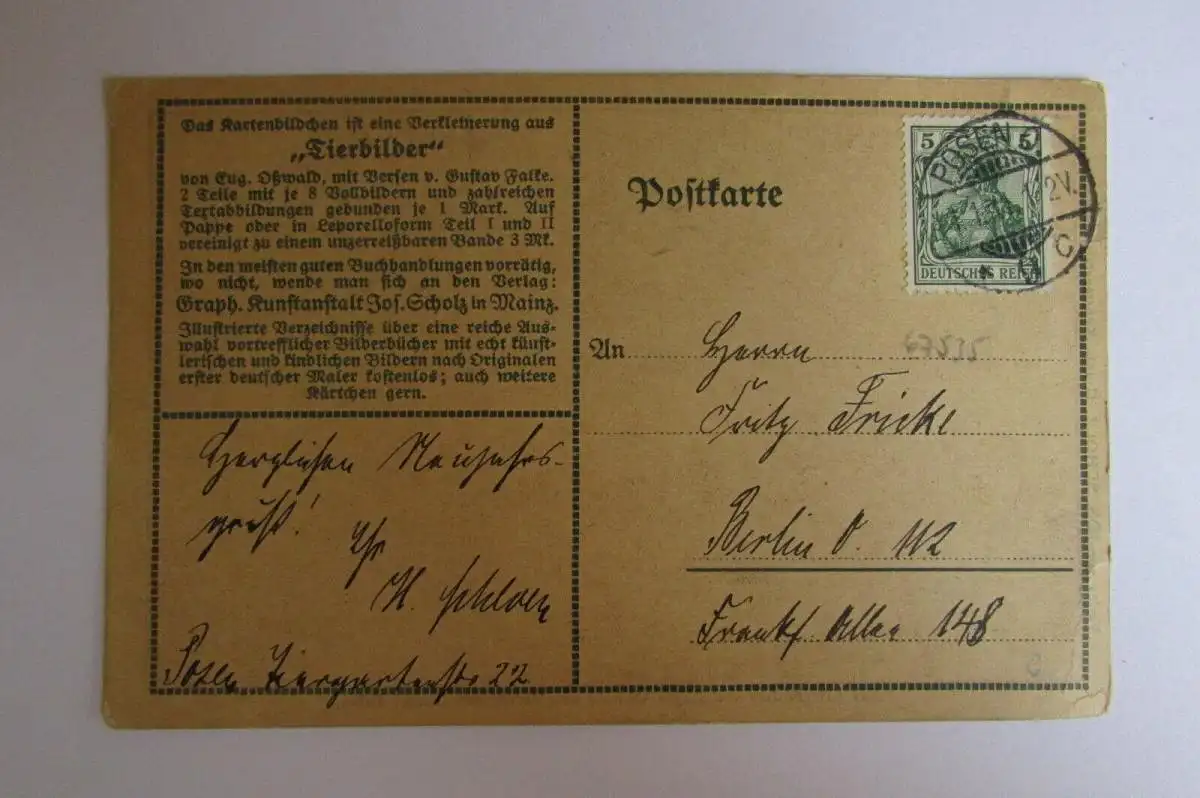 Das Kartenbildchen ist eine Verkleinerung aus
„Tierbilder“
von Eug. Oßwald, mit Versen v. Gustav Falke.
2 Teile mit je 8 Vollbildern und zahlreichen
Textabbildungen gebunden je 1 Mark. Auf
Pappe oder in Leporelloform Teil I und II
vereinigt zu einem unzerreißbaren Bande 3 Mk.
In den meisten guten Buchhandlungen vorrätig,
wo nicht, wende man sich an den Verlag:
Graph. Kunstanstalt Jos. Scholz in Mainz.
Illustrierte Verzeichnisse über eine reiche Aus-
wahl vortrefflicher Bilderbücher mit echt künst-
lerischen und kindlichen Bildern nach Originalen
erster deutscher Maler kostenlos; auch weitere
Kärtchen gern.
Herzlichen Neujahrs-
gruß!
Ihr
H.
Posen Tiergartenstr 22
Postkarte
5 5
DEUTSCHES REICH
POSEN
2V.
C
67535
An Herrn
Fritz Fricke
Berlin O. 112
Frankf Allee 148